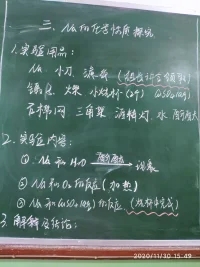 三、Na的化学性质探究
1.实验用品:
Na 小刀 滤纸
镊子 火柴 小烧杯(2个) CuSO4(aq)
石棉网 三角架 酒精灯 水 酚酞
2.实验内容:
①、Na和H2O 酚酞 现象
②Na和O2的反应(加热)
③Na和CuSO4(aq)的反应,(烧杯中完成)
3.解释及结论:
2020/11/30 15:49